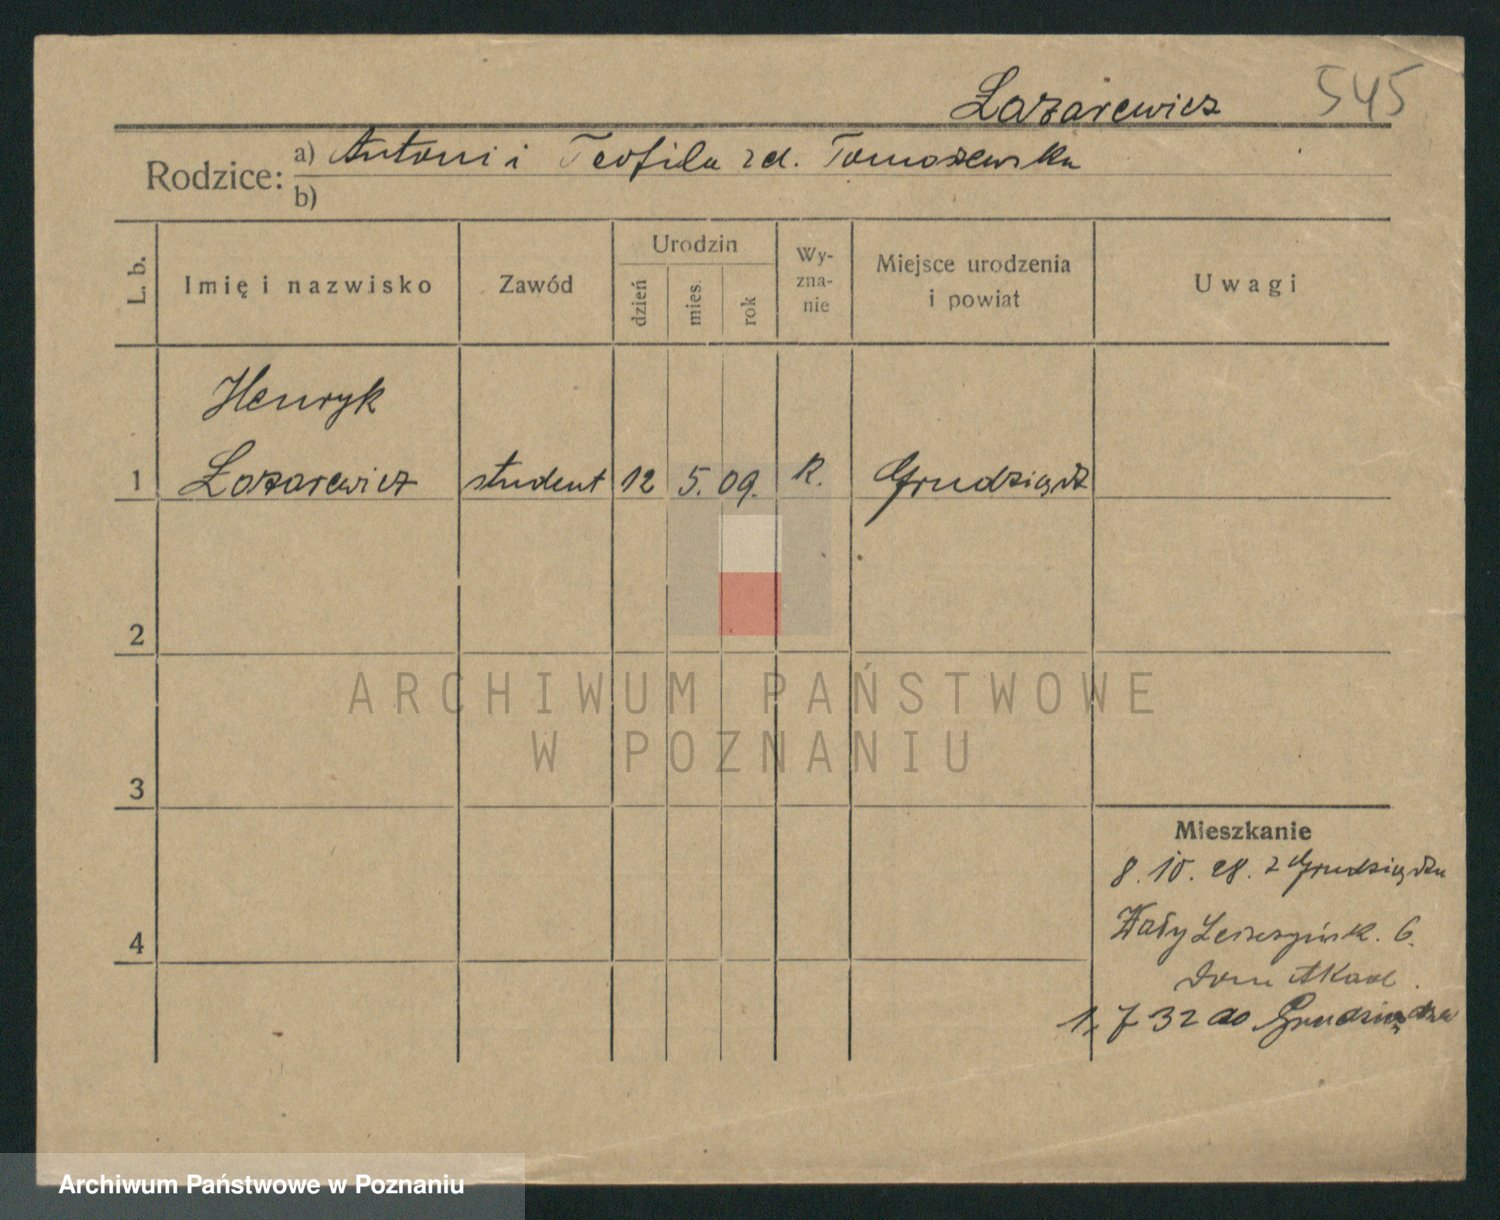 Łazarewicz 545
Rodzice: a) Antoni i Teofila zd. Tomaszewska
b)
L. b. Imię i nazwisko Zawód Urodzin dzień mies. rok Wy-zna-nie Miejsce urodzenia i powiat Uwagi
Henryk
1 Łazarewicz student 12 5. 09. K. Grudziądz
2
ARCHIWUM PAŃSTWOWE
W POZNANIU
3
Mieszkanie
8. 10. 28. z Grudziądza
4 Wały Leszczyńsk. 6.
Dom Akad.
1. 7 32 do Grudziądza
Archiwum Państwowe w Poznaniu